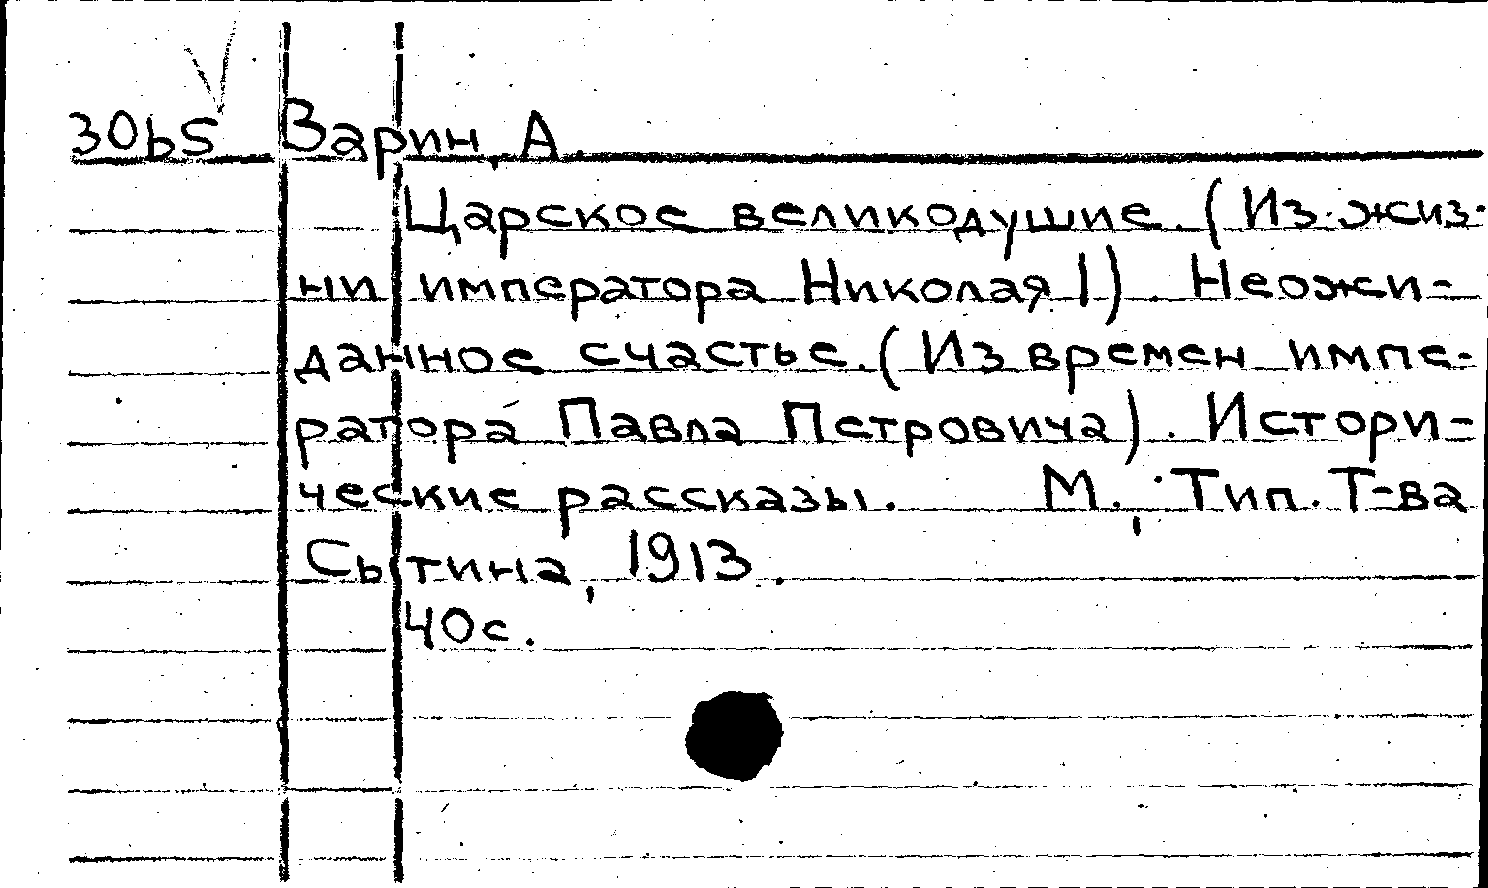 30b5 Зарин, А.
Царское великодушие. (Из жиз-
ни императора Николая I). Неожи-
данное счастье. (Из времен импе-
ратора Павла Петровича). Истори-
ческие рассказы. М., Тип. Т-ва
Сытина, 1913.
40с.